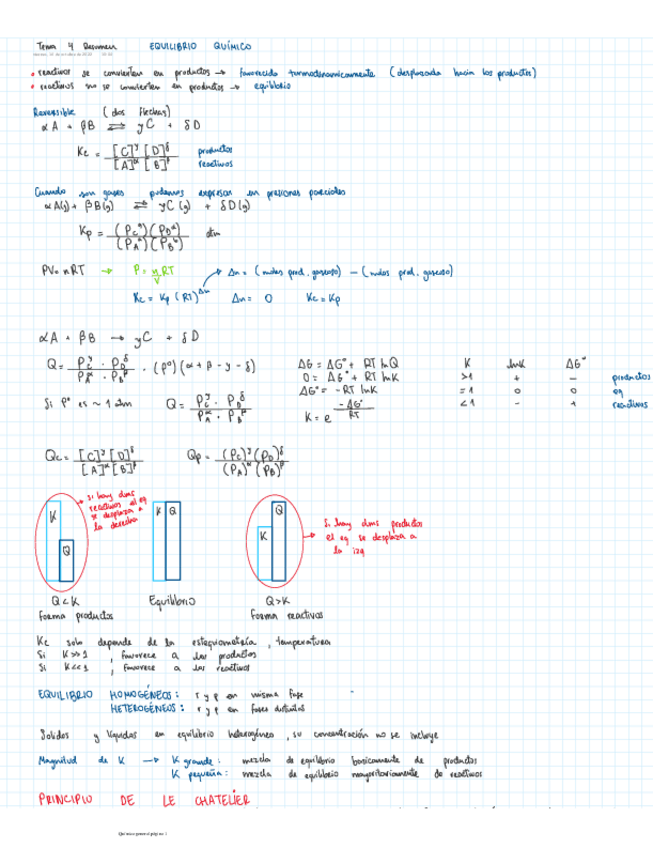 Tema 4 Resumen EQUILIBRIO QUÍMICO
• reactivos se convierten en productos → favorecido termodinamicamente (desplazada hacia los productos)
• reactivos no se convierten en productos → equilibrio
Reversible (dos flechas)
αA + βB ⇌ γC + δD
Kc = [C]^γ [D]^δ / [A]^α [B]^β productos reactivos
Cuando son gases podemos expresar en presiones parciales
αA(g) + βB(g) ⇌ γC(g) + δD(g)
Kp = (Pc^γ)(PD^δ) / (PA^α)(PB^β) atm
PV = nRT → P = n/V RT Δn = (moles prod. gaseoso) - (moles prod. gaseoso)
Kc = Kp (RT)^Δn Δn = 0 Kc = Kp
αA + βB → γC + δD
Q = Pc^γ · PD^δ / PA^α · PB^β · (p°)(α + β - γ - δ)
Si P° es ~ 1 atm Q = Pc^γ · PD^δ / PA^α · PB^β
ΔG = ΔG° + RT lnQ
0 = ΔG° + RT lnK
ΔG° = -RT lnK
K = e^(-ΔG°/RT)
K lnK ΔG°
>1 + - productos
=1 0 0 eq
<1 - + reactivos
Qc = [C]^γ [D]^δ / [A]^α [B]^β Qp = (Pc)^γ (PD)^δ / (PA)^α (PB)^β
si hay dms reactivos el eq se desplaza a la derecha
K Q
K Q
K Q
Si hay dms productos el eq se desplaza a la izq
Q<K Equilibrio Q>K
Forma productos Forma reactivos
Kc solo depende de la estequiometría, temperatura
Si K>>1, favorece a los productos
Si K<<1, favorece a los reactivos
EQUILIBRIO HOMOGÉNEOS: r y p en misma fase
HETEROGÉNEOS: r y p en fases distintas
Solidos y líquidos en equilibrio heterogéneo, su concentración no se incluye
Magnitud de K → K grande: mezcla de equilibrio basicamente de productos
K pequeña: mezcla de equilibrio mayoritariamente de reactivos
PRINCIPIO DE LE CHATELIER
Química general página 1